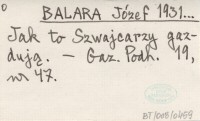 0
BALARA Józef 1931...
Jak to Szwajcarzy gaz-
dują. — Gaz. Podh. 19,
nr 47.
BT/OMB/0459